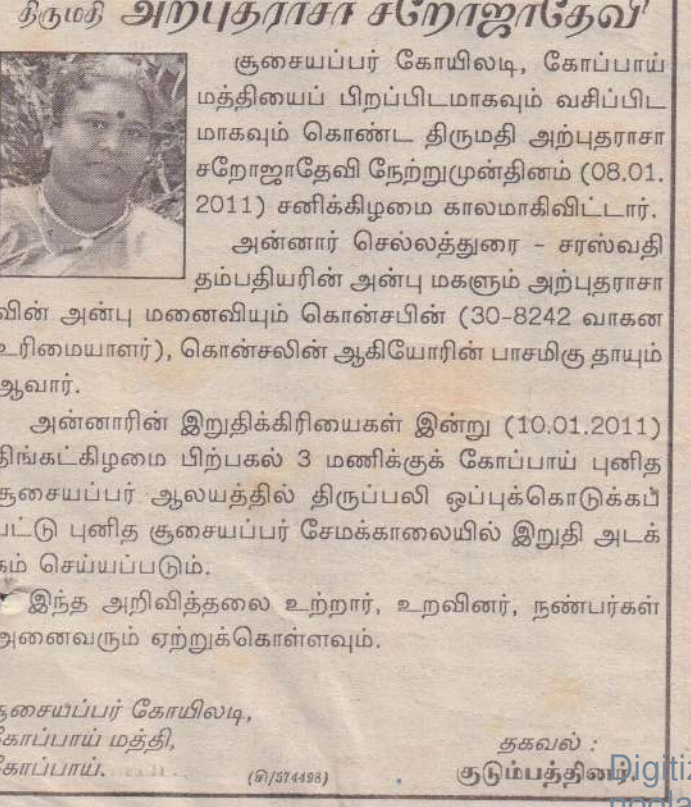 திருமதி அற்புதராசா சறோஜாதேவி
சூசையப்பர் கோயிலடி, கோப்பாய்
மத்தியைப் பிறப்பிடமாகவும் வசிப்பிட
மாகவும் கொண்ட திருமதி அற்புதராசா
சறோஜாதேவி நேற்றுமுன்தினம் (08.01.
2011) சனிக்கிழமை காலமாகிவிட்டார்.
அன்னார் செல்லத்துரை – சரஸ்வதி
தம்பதியரின் அன்பு மகளும் அற்புதராசா
வின் அன்பு மனைவியும் கொன்சபின் (30-8242 வாகன
உரிமையாளர்), கொன்சலின் ஆகியோரின் பாசமிகு தாயும்
ஆவார்.
அன்னாரின் இறுதிக்கிரியைகள் இன்று (10.01.2011)
திங்கட்கிழமை பிற்பகல் 3 மணிக்குக் கோப்பாய் புனித
சூசையப்பர் ஆலயத்தில் திருப்பலி ஒப்புக்கொடுக்கப்
பட்டு புனித சூசையப்பர் சேமக்காலையில் இறுதி அடக்
கம் செய்யப்படும்.
இந்த அறிவித்தலை உற்றார், உறவினர், நண்பர்கள்
அனைவரும் ஏற்றுக்கொள்ளவும்.
சூசையப்பர் கோயிலடி,
கோப்பாய் மத்தி,
கோப்பாய்.
(சி/574498)
தகவல் :
குடும்பத்தினர்.